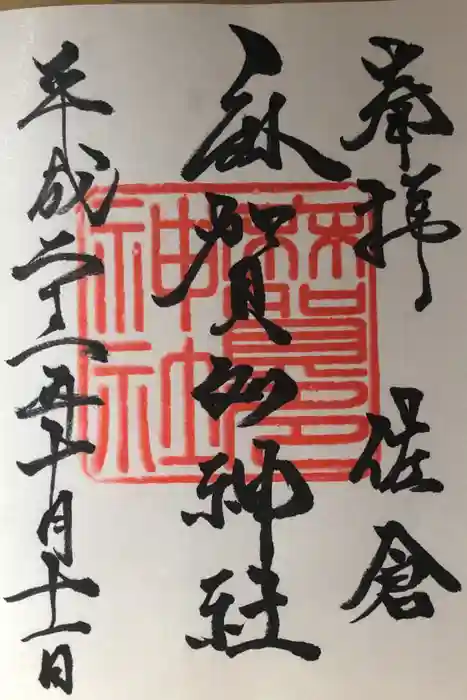 奉拝 佐倉
麻賀多神社
平成二十五年十月十一日
麻賀多神社